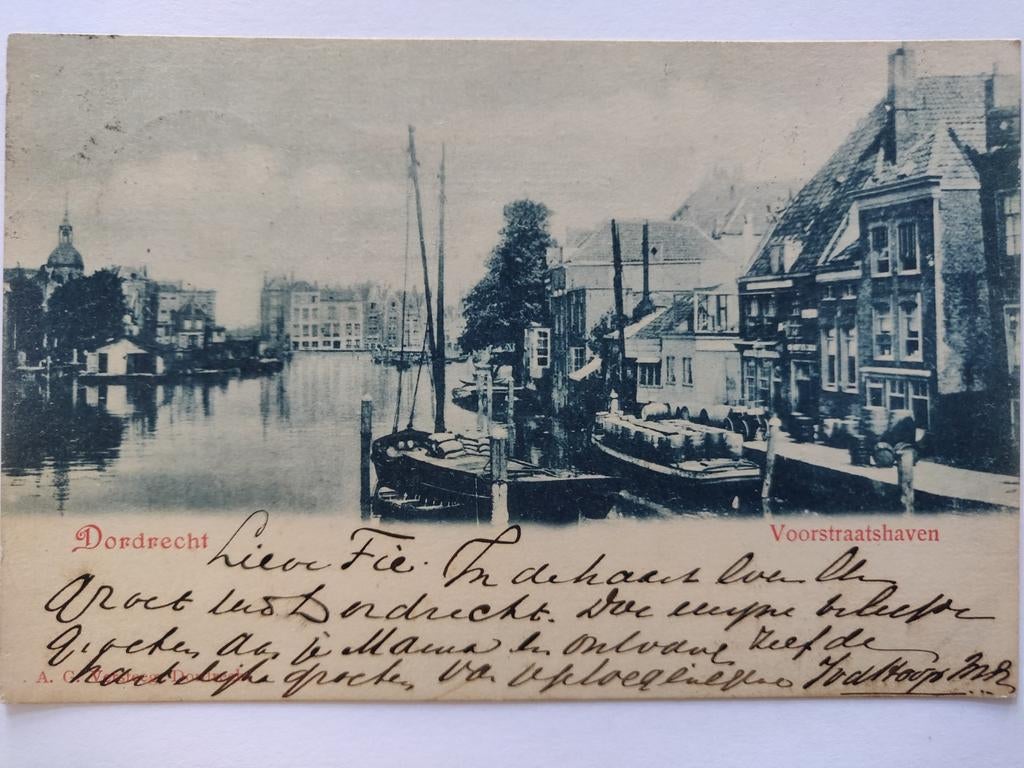 Dordrecht
Voorstraatshaven
Lieve Fie. In de haast even een
groet uit Dordrecht. Doe mijne beleefde
groeten aan je Mama en ontvang zelf de
hartelijke groeten van
A. G. Dordrecht